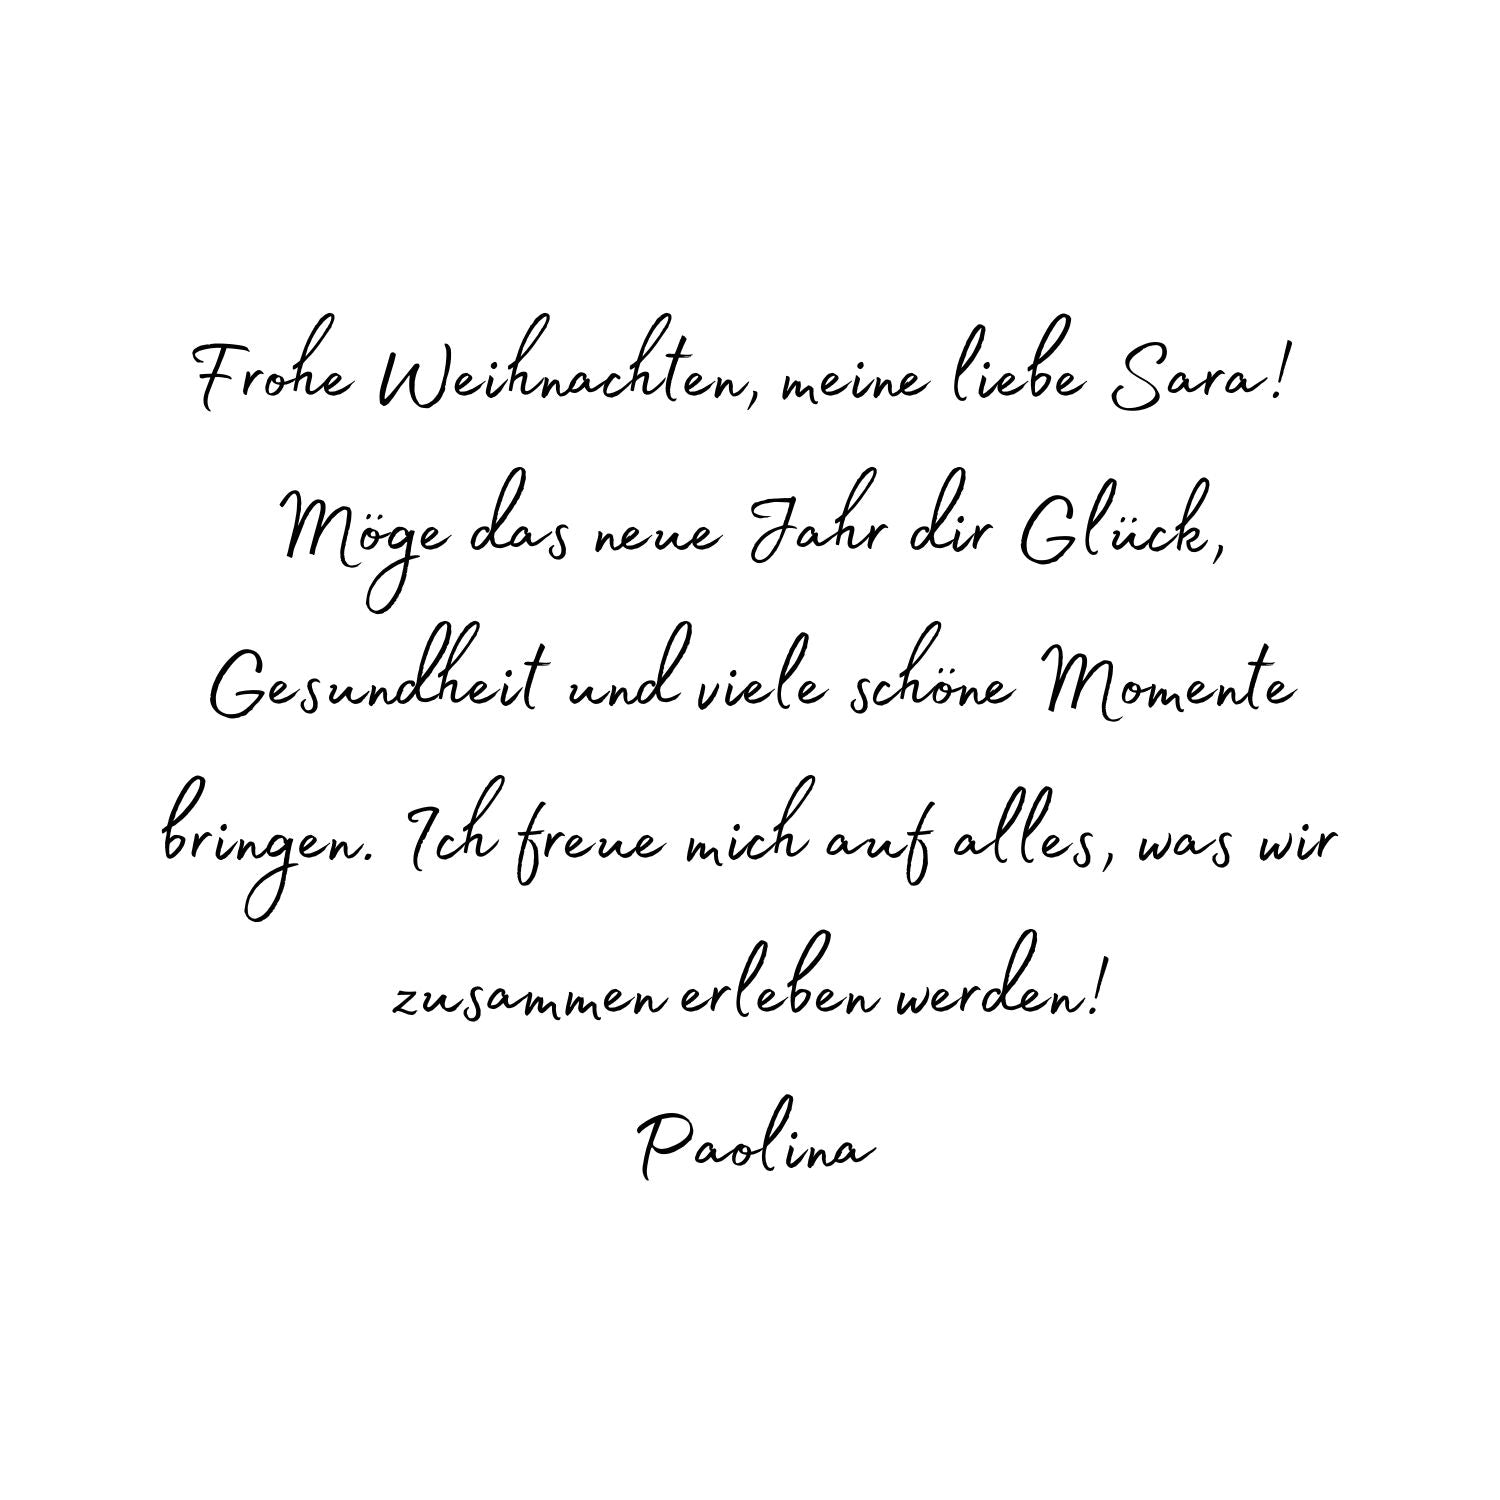 Frohe Weihnachten, meine liebe Sara!
Möge das neue Jahr dir Glück,
Gesundheit und viele schöne Momente
bringen. Ich freue mich auf alles, was wir
zusammen erleben werden!
Paolina